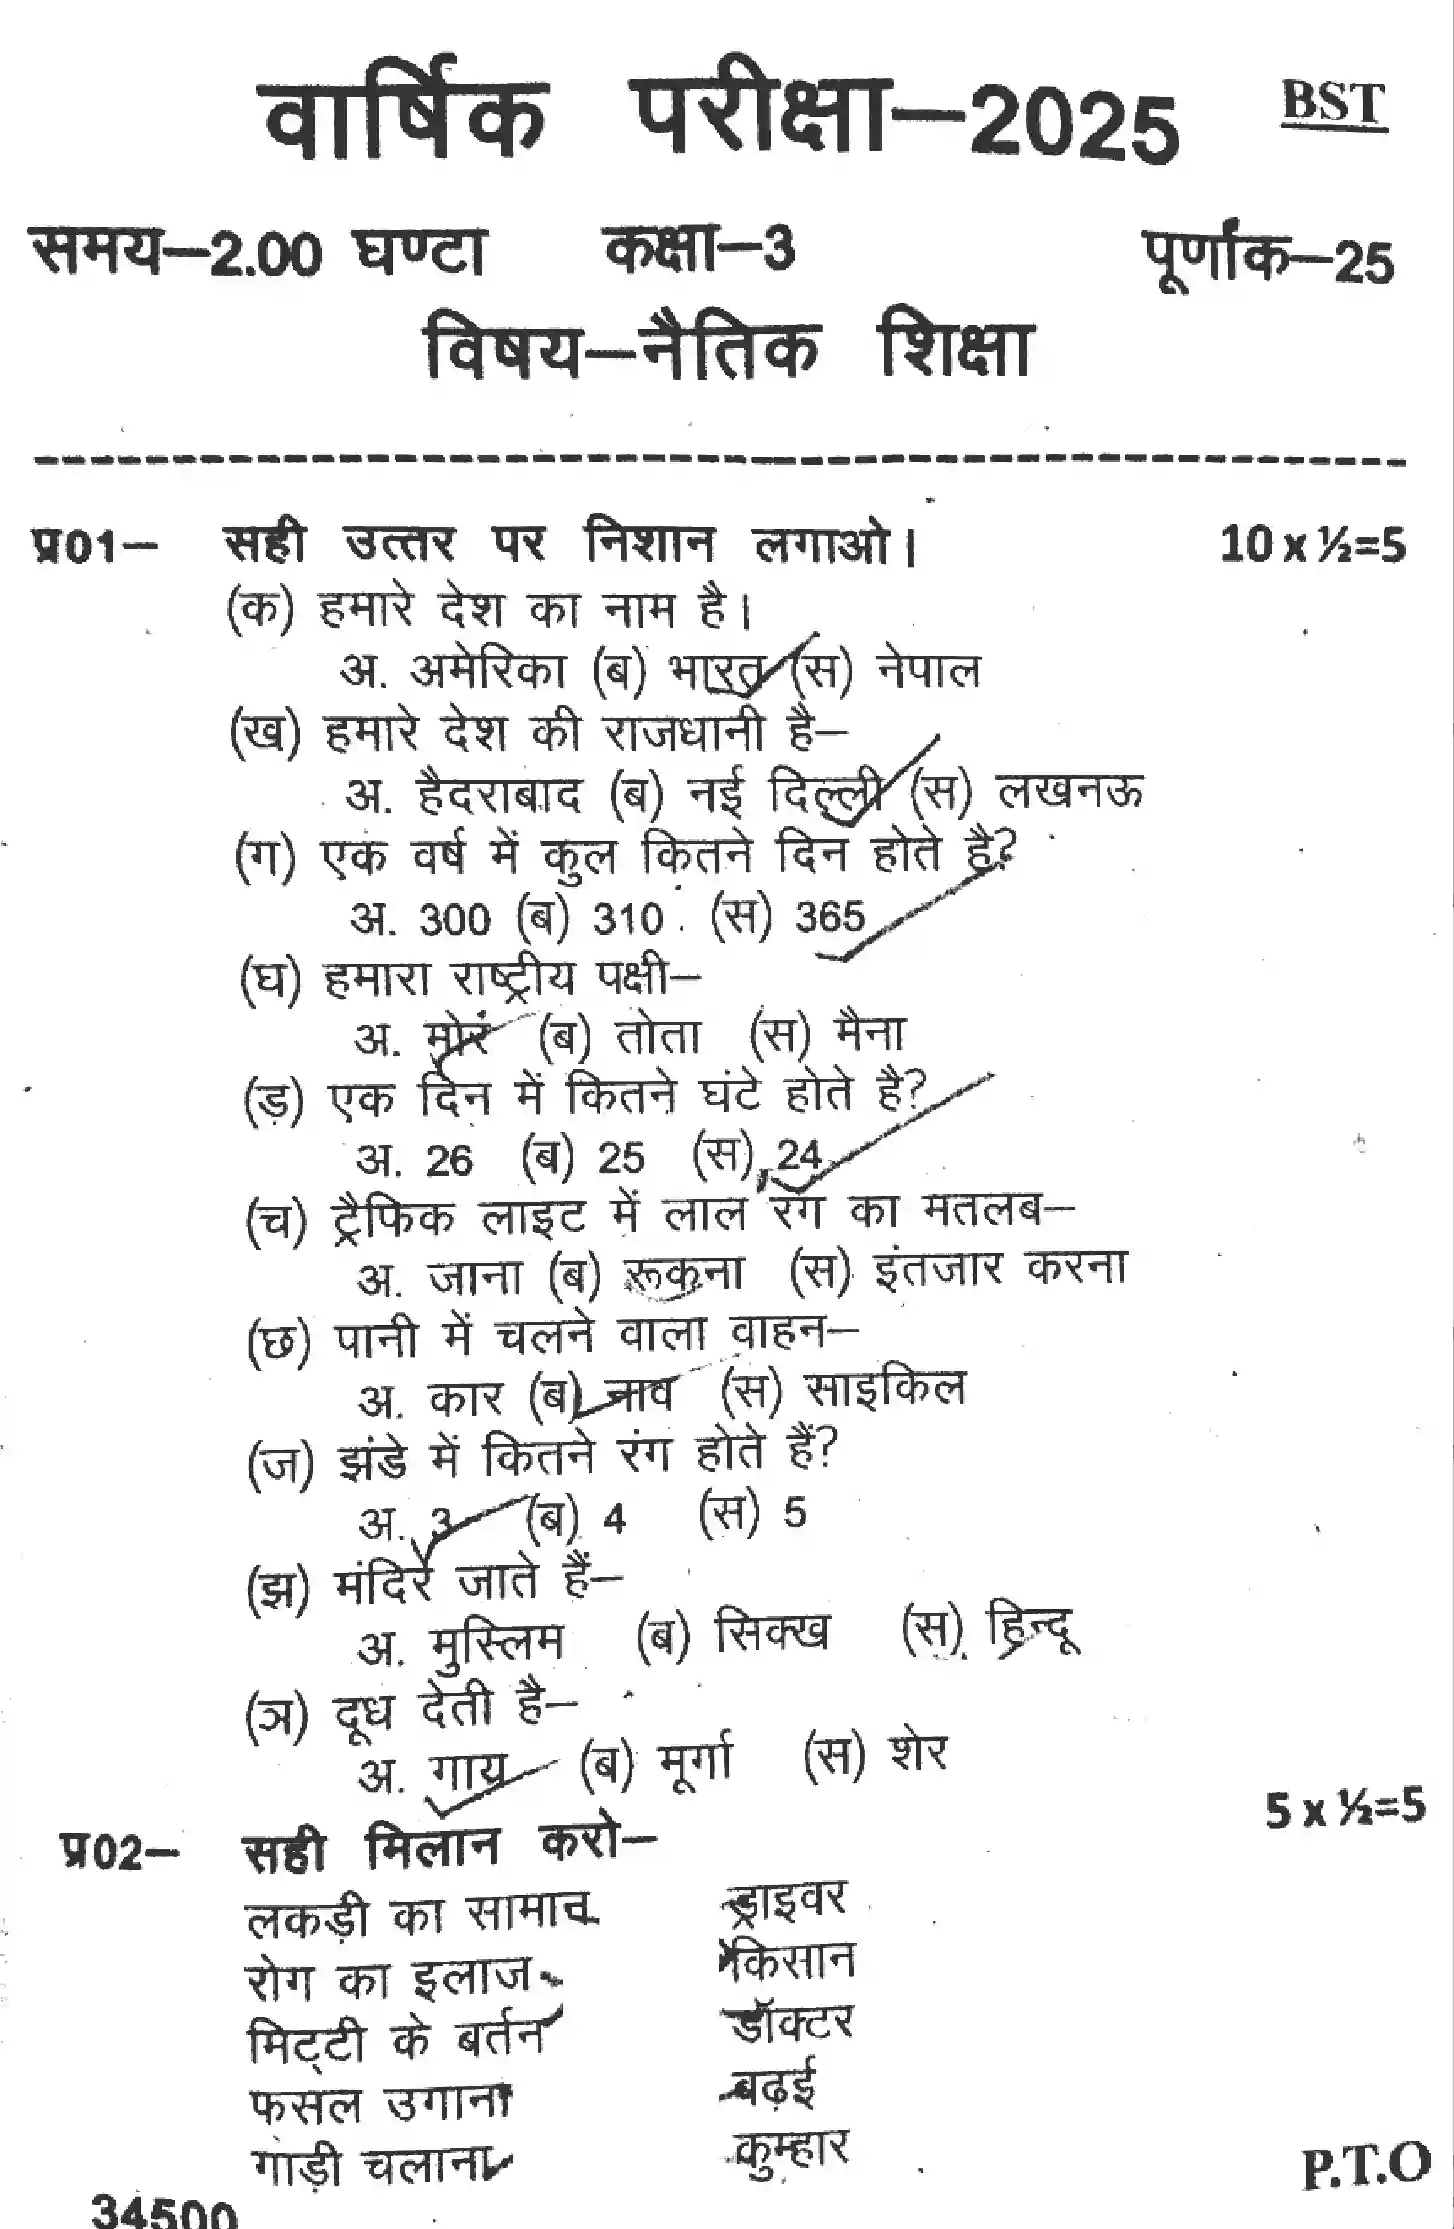 वार्षिक परीक्षा–2025 BST
समय–2.00 घण्टा कक्षा–3 पूर्णांक–25
विषय–नैतिक शिक्षा
प्र01– सही उत्तर पर निशान लगाओ। 10 x ½=5
(क) हमारे देश का नाम है।
अ. अमेरिका (ब) भारत (स) नेपाल
(ख) हमारे देश की राजधानी है–
अ. हैदराबाद (ब) नई दिल्ली (स) लखनऊ
(ग) एक वर्ष में कुल कितने दिन होते है?
अ. 300 (ब) 310 (स) 365
(घ) हमारा राष्ट्रीय पक्षी–
अ. मोर (ब) तोता (स) मैना
(ड़) एक दिन में कितने घंटे होते है?
अ. 26 (ब) 25 (स) 24
(च) ट्रैफिक लाइट में लाल रंग का मतलब–
अ. जाना (ब) रूकना (स) इंतजार करना
(छ) पानी में चलने वाला वाहन–
अ. कार (ब) नाव (स) साइकिल
(ज) झंडे में कितने रंग होते हैं?
अ. 3 (ब) 4 (स) 5
(झ) मंदिर जाते हैं–
अ. मुस्लिम (ब) सिक्ख (स) हिन्दू
(ञ) दूध देती है–
अ. गाय (ब) मूर्गा (स) शेर
प्र02– सही मिलान करो– 5 x ½=5
लकड़ी का सामान ड्राइवर
रोग का इलाज किसान
मिट्टी के बर्तन डॉक्टर
फसल उगाना बढ़ई
गाड़ी चलाना कुम्हार
P.T.O
34500